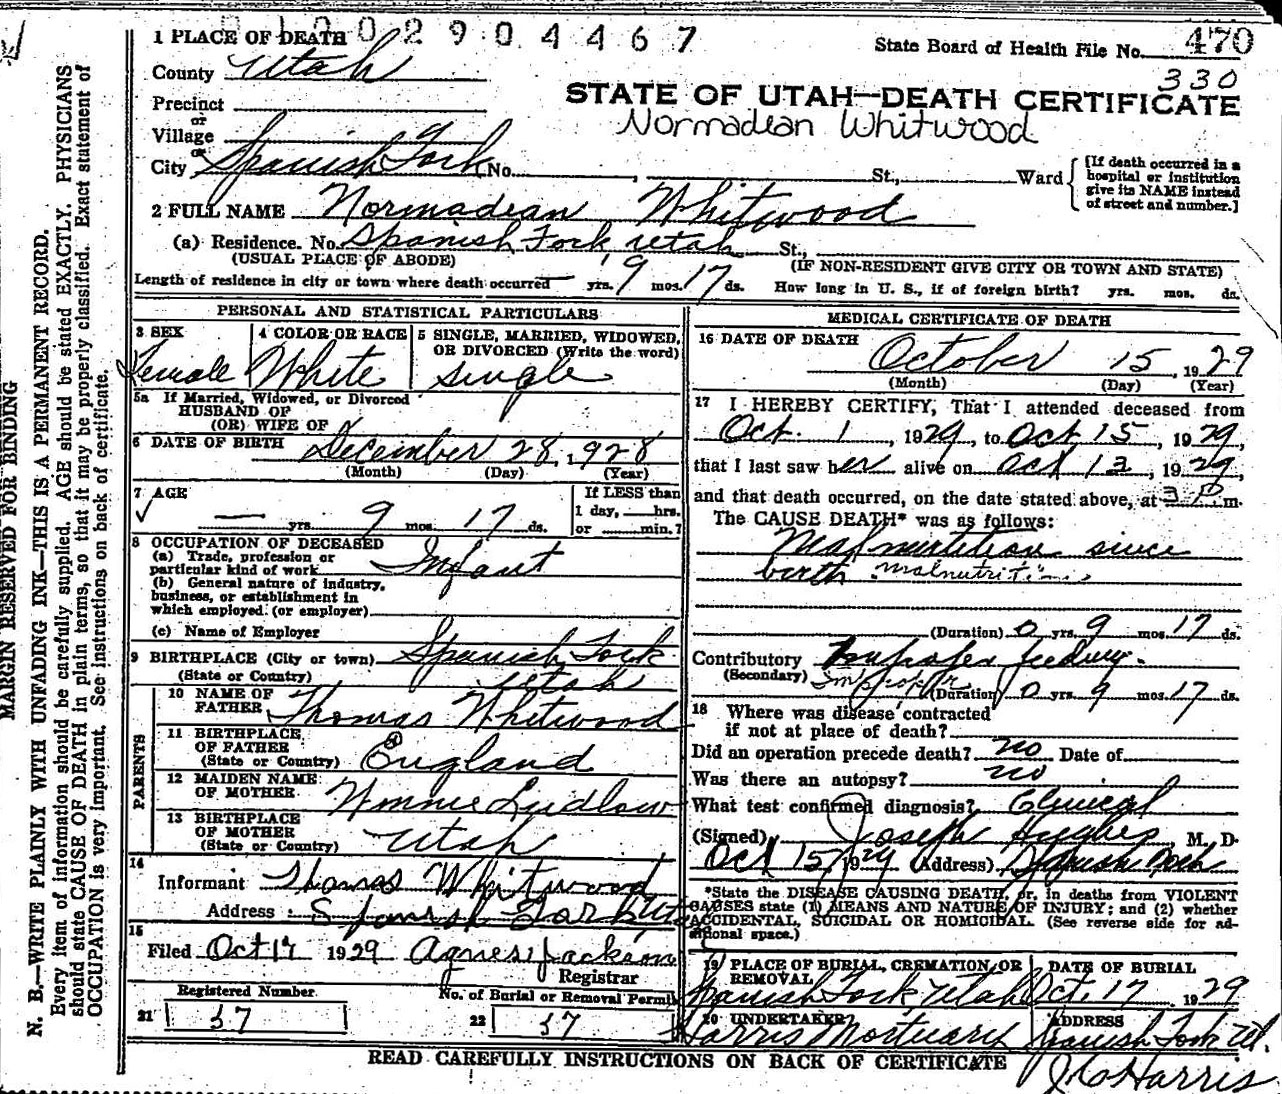 8 1 0 0 2 9 0 4 4 6 7
State Board of Health File No. 470
330
1 PLACE OF DEATH
County Utah
Precinct
or
Village
or
City Spanish Fork No. St., Ward
STATE OF UTAH—DEATH CERTIFICATE
Normadean Whitwood
[If death occurred in a
hospital or institution
give its NAME instead
of street and number.]
2 FULL NAME Normadean Whitwood
(a) Residence. No. Spanish Fork Utah St.,
(USUAL PLACE OF ABODE) (IF NON-RESIDENT GIVE CITY OR TOWN AND STATE)
Length of residence in city or town where death occurred — yrs. 9 mos. 17 ds. How long in U. S., if of foreign birth? yrs. mos. ds.
PERSONAL AND STATISTICAL PARTICULARS
3 SEX 4 COLOR OR RACE 5 SINGLE, MARRIED, WIDOWED,
OR DIVORCED (Write the word)
Female White Single
5a If Married, Widowed, or Divorced
HUSBAND OF
(OR) WIFE OF
6 DATE OF BIRTH December 28, 1928
(Month) (Day) (Year)
7 AGE
— yrs. 9 mos. 17 ds.
If LESS than
1 day, hrs.
or min.?
8 OCCUPATION OF DECEASED
(a) Trade, profession or
particular kind of work Infant
(b) General nature of industry,
business, or establishment in
which employed (or employer)
(c) Name of Employer
9 BIRTHPLACE (City or town) Spanish Fork
(State or Country) Utah
PARENTS
10 NAME OF
FATHER Thomas Whitwood
11 BIRTHPLACE
OF FATHER
(State or Country) England
12 MAIDEN NAME
OF MOTHER Ludlow
13 BIRTHPLACE
OF MOTHER
(State or Country) Utah
14
Informant Thomas Whitwood
Address Spanish Fork Ut
15
Filed Oct 17 1929 Agnes Jackson
Registrar
Registered Number No. of Burial or Removal Permit
21 57 22 57
MEDICAL CERTIFICATE OF DEATH
16 DATE OF DEATH
October 15, 1929
(Month) (Day) (Year)
17 I HEREBY CERTIFY, That I attended deceased from
Oct. 1, 1929, to Oct 15, 1929,
that I last saw her alive on Oct 13 1929,
and that death occurred, on the date stated above, at 3 P m.
The CAUSE DEATH* was as follows:
Malnutrition since
birth malnutrition
(Duration) 0 yrs. 9 mos. 17 ds.
Contributory Improper feeding.
(Secondary) Improper
(Duration) 0 yrs. 9 mos. 17 ds.
18 Where was disease contracted
if not at place of death?
Did an operation precede death? no Date of
Was there an autopsy? no
What test confirmed diagnosis? Clinical
(Signed) Joseph Hughes M. D.
Oct 15, 1929 (Address) Spanish Fork
*State the DISEASE CAUSING DEATH, or, in deaths from VIOLENT
CAUSES state (1) MEANS AND NATURE OF INJURY; and (2) whether
ACCIDENTAL, SUICIDAL OR HOMICIDAL. (See reverse side for ad-
ditional space.)
19 PLACE OF BURIAL, CREMATION, OR
REMOVAL
DATE OF BURIAL
Spanish Fork, Utah Oct. 17 1929
20 UNDERTAKER ADDRESS
Harris Mortuary Spanish Fork Ut.
J C Harris
READ CAREFULLY INSTRUCTIONS ON BACK OF CERTIFICATE
MARGIN RESERVED FOR BINDING
N. B.—WRITE PLAINLY WITH UNFADING INK—THIS IS A PERMANENT RECORD.
Every item of information should be carefully supplied. AGE should be stated EXACTLY. PHYSICIANS
should state CAUSE OF DEATH in plain terms, so that it may be properly classified. Exact statement of
OCCUPATION is very important. See instructions on back of certificate.